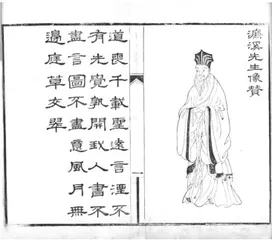 濂溪先生像贊
道喪千載聖遠言湮不
有先覺孰開我人書不
盡言圖不盡意風月無
邊庭草交翠